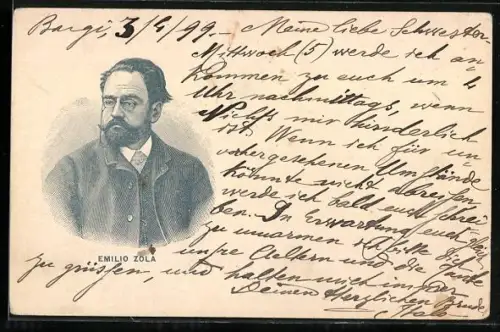 Bargi, 3/4/99.- Meine liebe Schwester
Mittwoch (5) werde ich an-
kommen zu euch um 4
Uhr nachmittags, wenn
Nichts mir hinderlich
ist. Wenn ich für un-
vorhergesehenen Umstände
könnte nicht abreisen
werde ich bald euch schrei-
ben. In Erwartung euch
zu umarmen bitte dich
unsre Aeltern und die Tante
zu grüssen, und halten mich immer
Deinen Herzlichen Bruder
EMILIO ZOLA